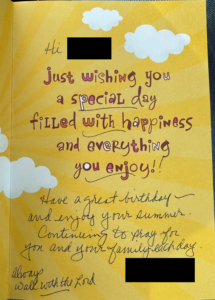 Hi
just wishing you
a special day
filled with happiness
and everything
you enjoy!!
Have a great birthday
and enjoy your summer.
Continuing to pray for
you and your family each day.
Always
Walk with the Lord